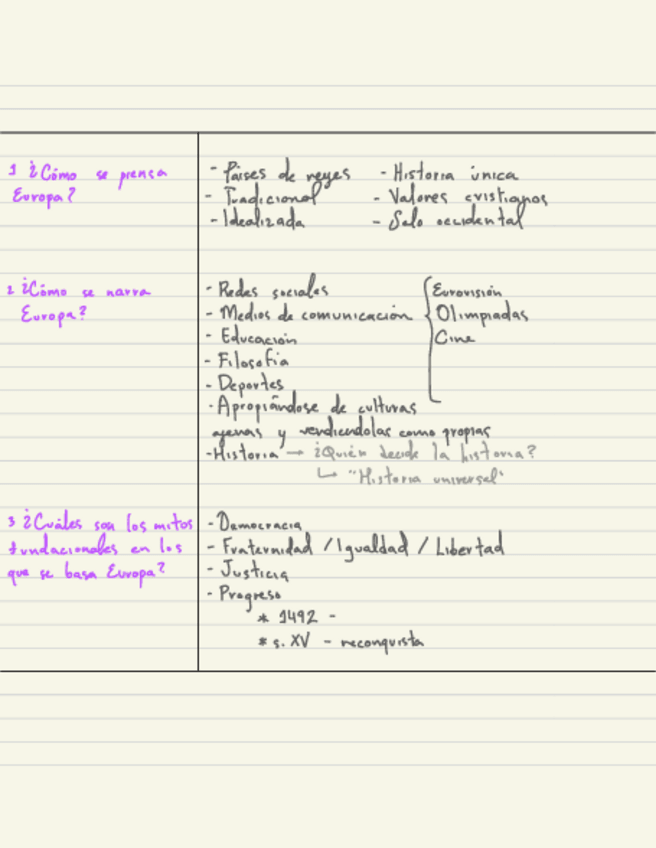 1 ¿Cómo se piensa
Europa?
- Países de reyes - Historia única
- Tradicional - Valores cristianos
- Idealizada - Solo occidental
2 ¿Cómo se narra
Europa?
- Redes sociales { Eurovisión
- Medios de comunicación Olimpiadas
- Educación Cine
- Filosofía
- Deportes
- Apropiándose de culturas
ajenas y vendiendolas como propias
- Historia → ¿Quién decide la historia?
↳ "Historia universal"
3 ¿Cuáles son los mitos
fundacionales en los
que se basa Europa?
- Democracia
- Fraternidad / Igualdad / Libertad
- Justicia
- Progreso
* 1492 -
* s. XV - reconquista